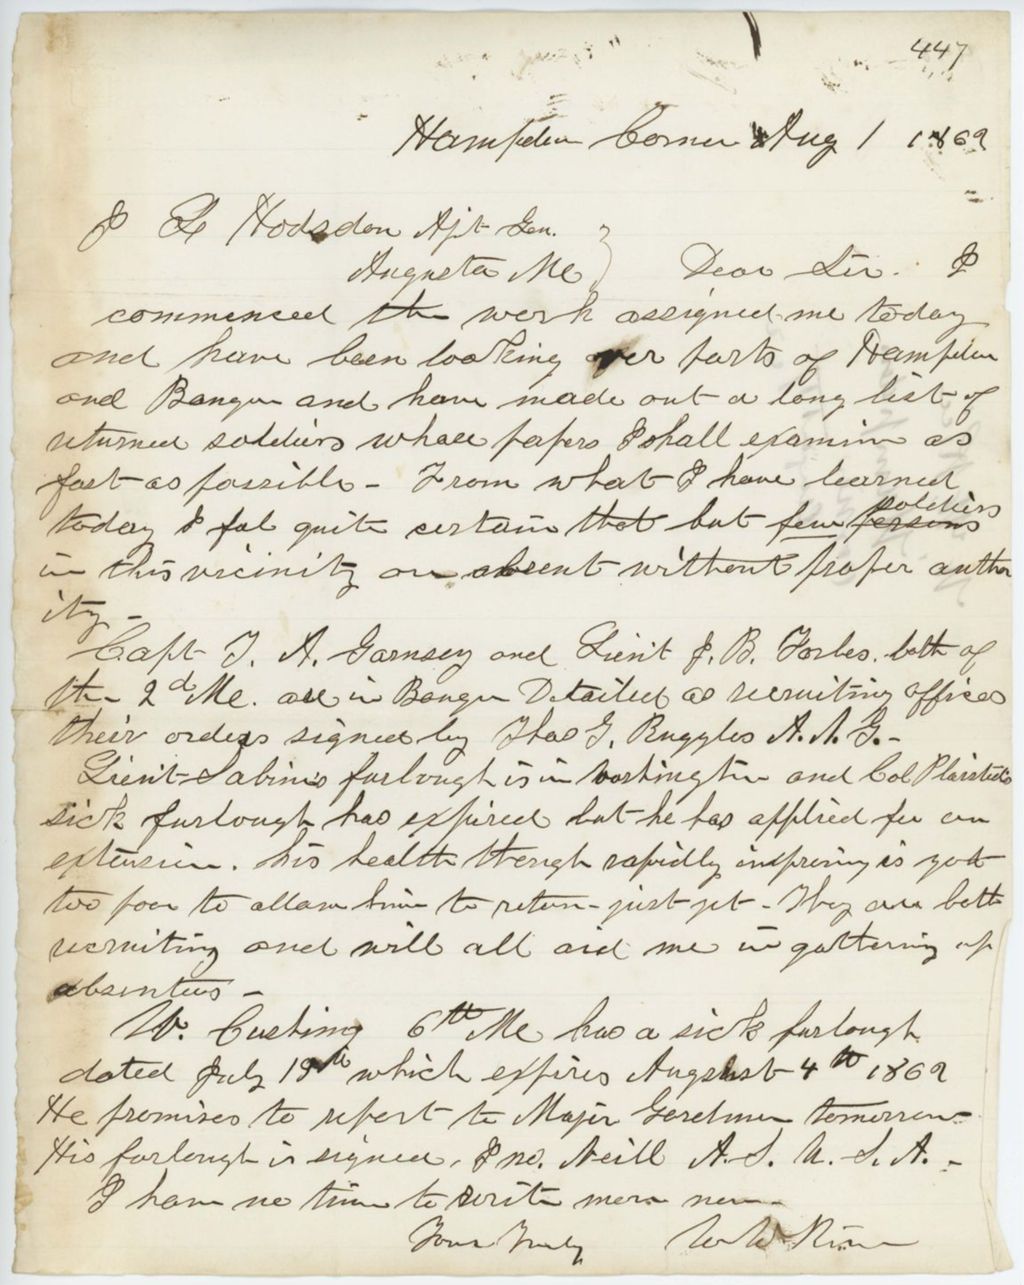 447
Hampden Corner Aug 1 1862
J L Hodsdon Ajt Gen.
Augusta Me } Dear Sir. I
commenced the work assigned me today
and have been looking over parts of Hampden
and Bangor and have made out a long list of
returned soldiers whose papers I shall examine as
fast as possible - From what I have learned
soldiers
today I feel quite certain that but few persons
in this vicinity are absent without proper author
ity -
Capt T. A. Garnsey and Lieut J. B. Forbes. both of
the 2d Me. are in Bangor Detailed as recruiting officers
their orders signed by Thos G. Ruggles A. A. G. -
Lieut Sabine's furlough is in Washington and Col Plaisted's
sick furlough has expired but he has applied for an
extension. his health though rapidly improving is yet
too poor to allow him to return - just yet - They are both
recruiting and will all aid me in gathering up
absentees -
W. Cushing 6th Me has a sick furlough
dated July 18th which expires August 4th 1862
He promises to report to Major Gardiner tomorrow -
His furlough is signed, Jno. Neill A. S. U. S. A. -
I have no time to write more now -
Yours Truly W W Rice